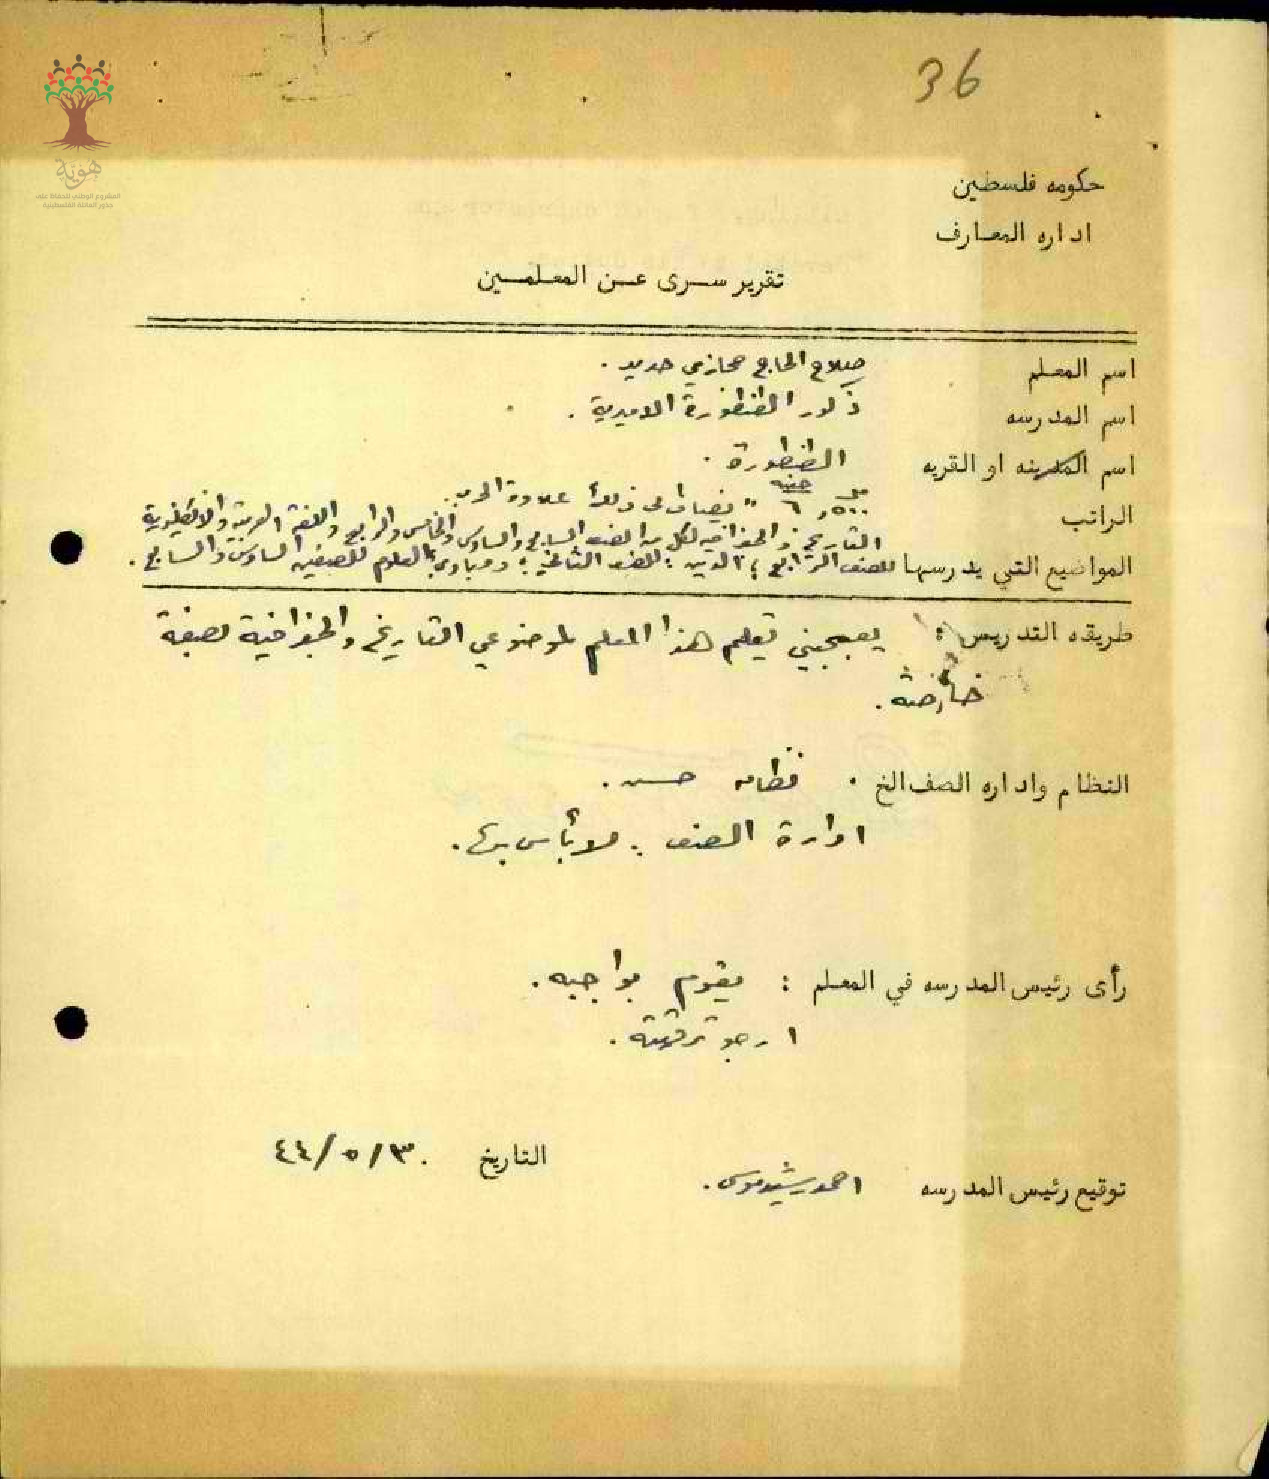 36
هوية
المشروع الوطني للحفاظ على
جذور العائلة الفلسطينية
حكومه فلسطين
اداره المعارف
تقرير سرى عن المعلمين
اسم المعلم صلاح الحاج حجازي حديد .
اسم المدرسه ذكور الطنطورة الاميرية .
اسم المدينه او القريه الطنطورة .
الراتب مل ٥٠٠ جنيه ٦ " يضاف الى ذلك علاوة الحرب .
المواضيع التي يدرسها التاريخ والجغرافيه لكل من الصف السابع والسادس والخامس والرابع واللغة العربية والانكليزية
للصف الرابع ؛ الدين : للصف الثاني ؛ ومبادئ العلوم للصفين السادس والسابع .
طريقه التدريس : يعجبني تعليم هذا المعلم لموضوعي التاريخ والجغرافية بصفة
خاصة .
النظام واداره الصف الخ . نظامه حسن .
ادارة الصف : لا بأس بها .
رأى رئيس المدرسه في المعلم : يقوم بواجبه .
ارجو ترقيته .
التاريخ ٣٠/٥/٤٤
توقيع رئيس المدرسه احمد رشيد موسى .